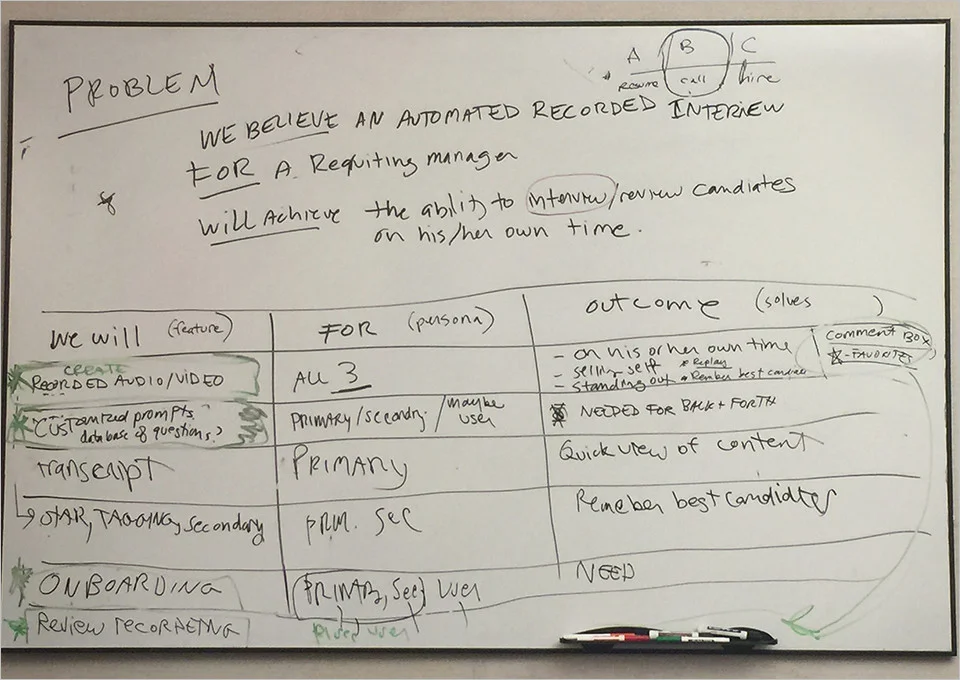 A B C
resume call hire
PROBLEM
WE BELIEVE AN AUTOMATED RECORDED INTERVIEW
FOR A Requiting manager
WILL ACHIEVE the ability to interview/review candiates
on his/her own time.
we will (feature)
FOR (persona)
outcome (solves )
CREATE
RECORDED AUDIO/VIDEO
ALL 3
- on his or her own time
- selling self * Replay
- standing out * Rember best candiates
comment Box
- FAVORITES
"CUSTomized prompts
database of questions?
PRIMARY/secondry. /maybe
user
NEEDED FOR BACK + FORTH
transcript
PRIMARY
Quick view of content
STAR, TAGGING, secondary
PRM. SEC
Remeber best candidtes
ONBOARDING
(PRIMARY, Sec) User
NEED
Review recordeing
user